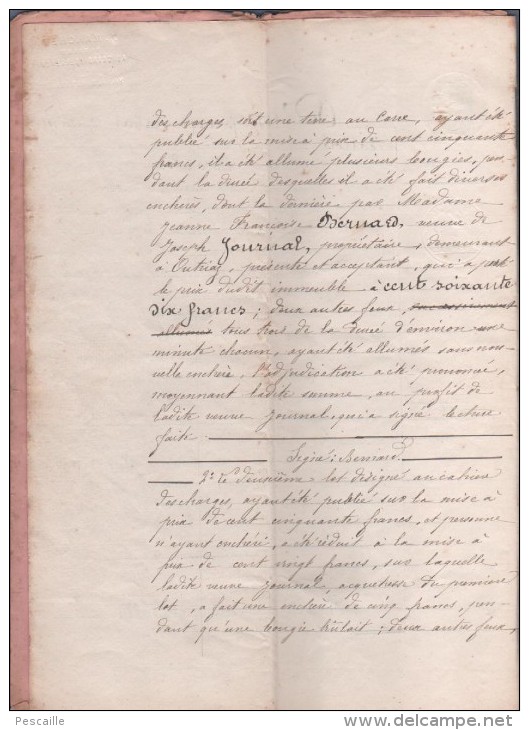 des charges, soit une terre au Carre, ayant été
publié sur la mise à prix de cent cinquante
francs, il a été allumé plusieurs bougies, pen-
dant la durée desquelles il a été fait diverses
enchères, dont la dernière par Madame
Jeanne Françoise Bernard, veuve de
Joseph Journal, propriétaire, demeurant
à Outriaz, présente et acceptant, qui a porté
le prix dudit immeuble à cent soixante
six francs; deux autres feux,
allumés tous trois de la durée d'environ une
minute chacun, ayant été allumés sans nou-
velle enchère, l'adjudication a été prononcée,
moyennant ladite somme, au profit de
ladite veuve Journal, qui a signé lecture
faite.
Signé: Bernard
2° Le deuxième lot désigné au cahier
des charges, ayant été publié sur la mise à
prix de cent cinquante francs, et personne
n'ayant enchéri, a été réduit à la mise à
prix de cent vingt francs, sur laquelle
ladite veuve Journal acquéresse du premier
lot, a fait une enchère de cinq francs, pen-
dant qu'une bougie brûlait; deux autres feux,
Pescaille
www.delcampe.net